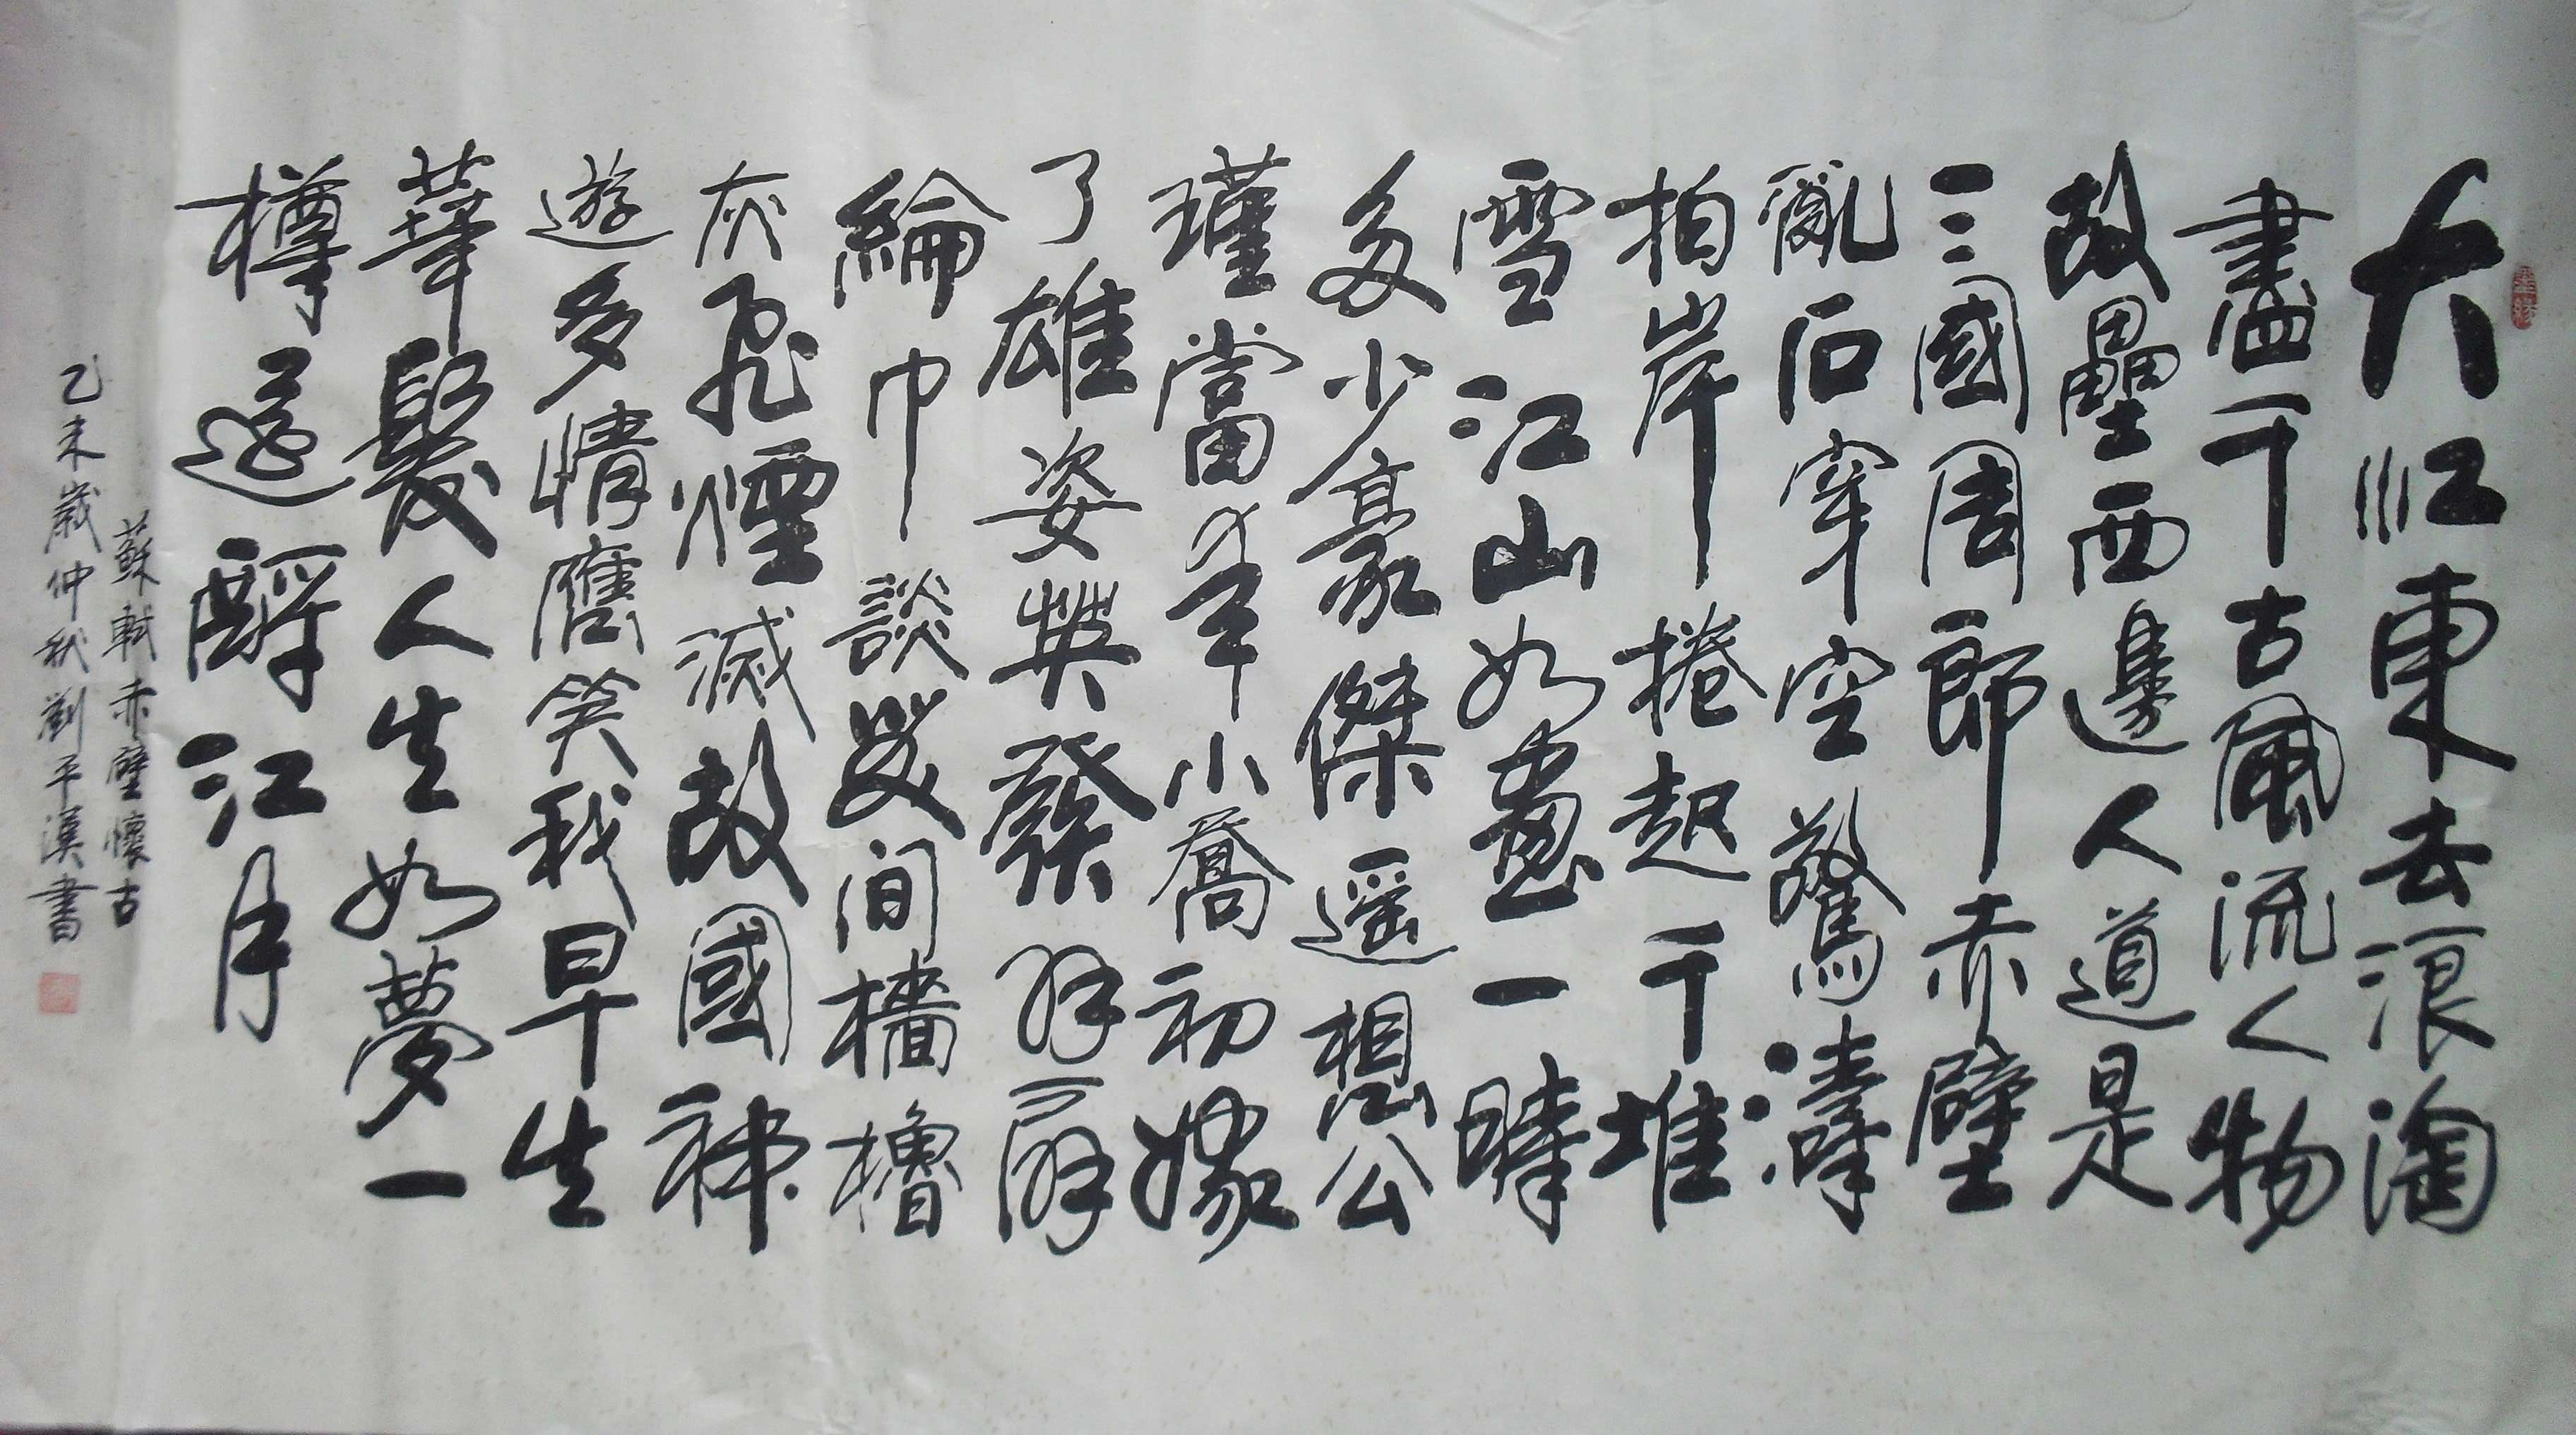 大江東去浪淘
盡千古風流人物
故壘西邊人道是
三國周郎赤壁
亂石穿空驚濤
拍岸捲起千堆
雪江山如畫一時
多少豪傑遥想公
瑾當年小喬初嫁
了雄姿英發羽扇
綸巾談笑間檣櫓
灰飛煙滅故國神
遊多情應笑我早生
華髮人生如夢一
樽還酹江月
蘇軾赤壁懷古
乙未歲仲秋劉平漢書